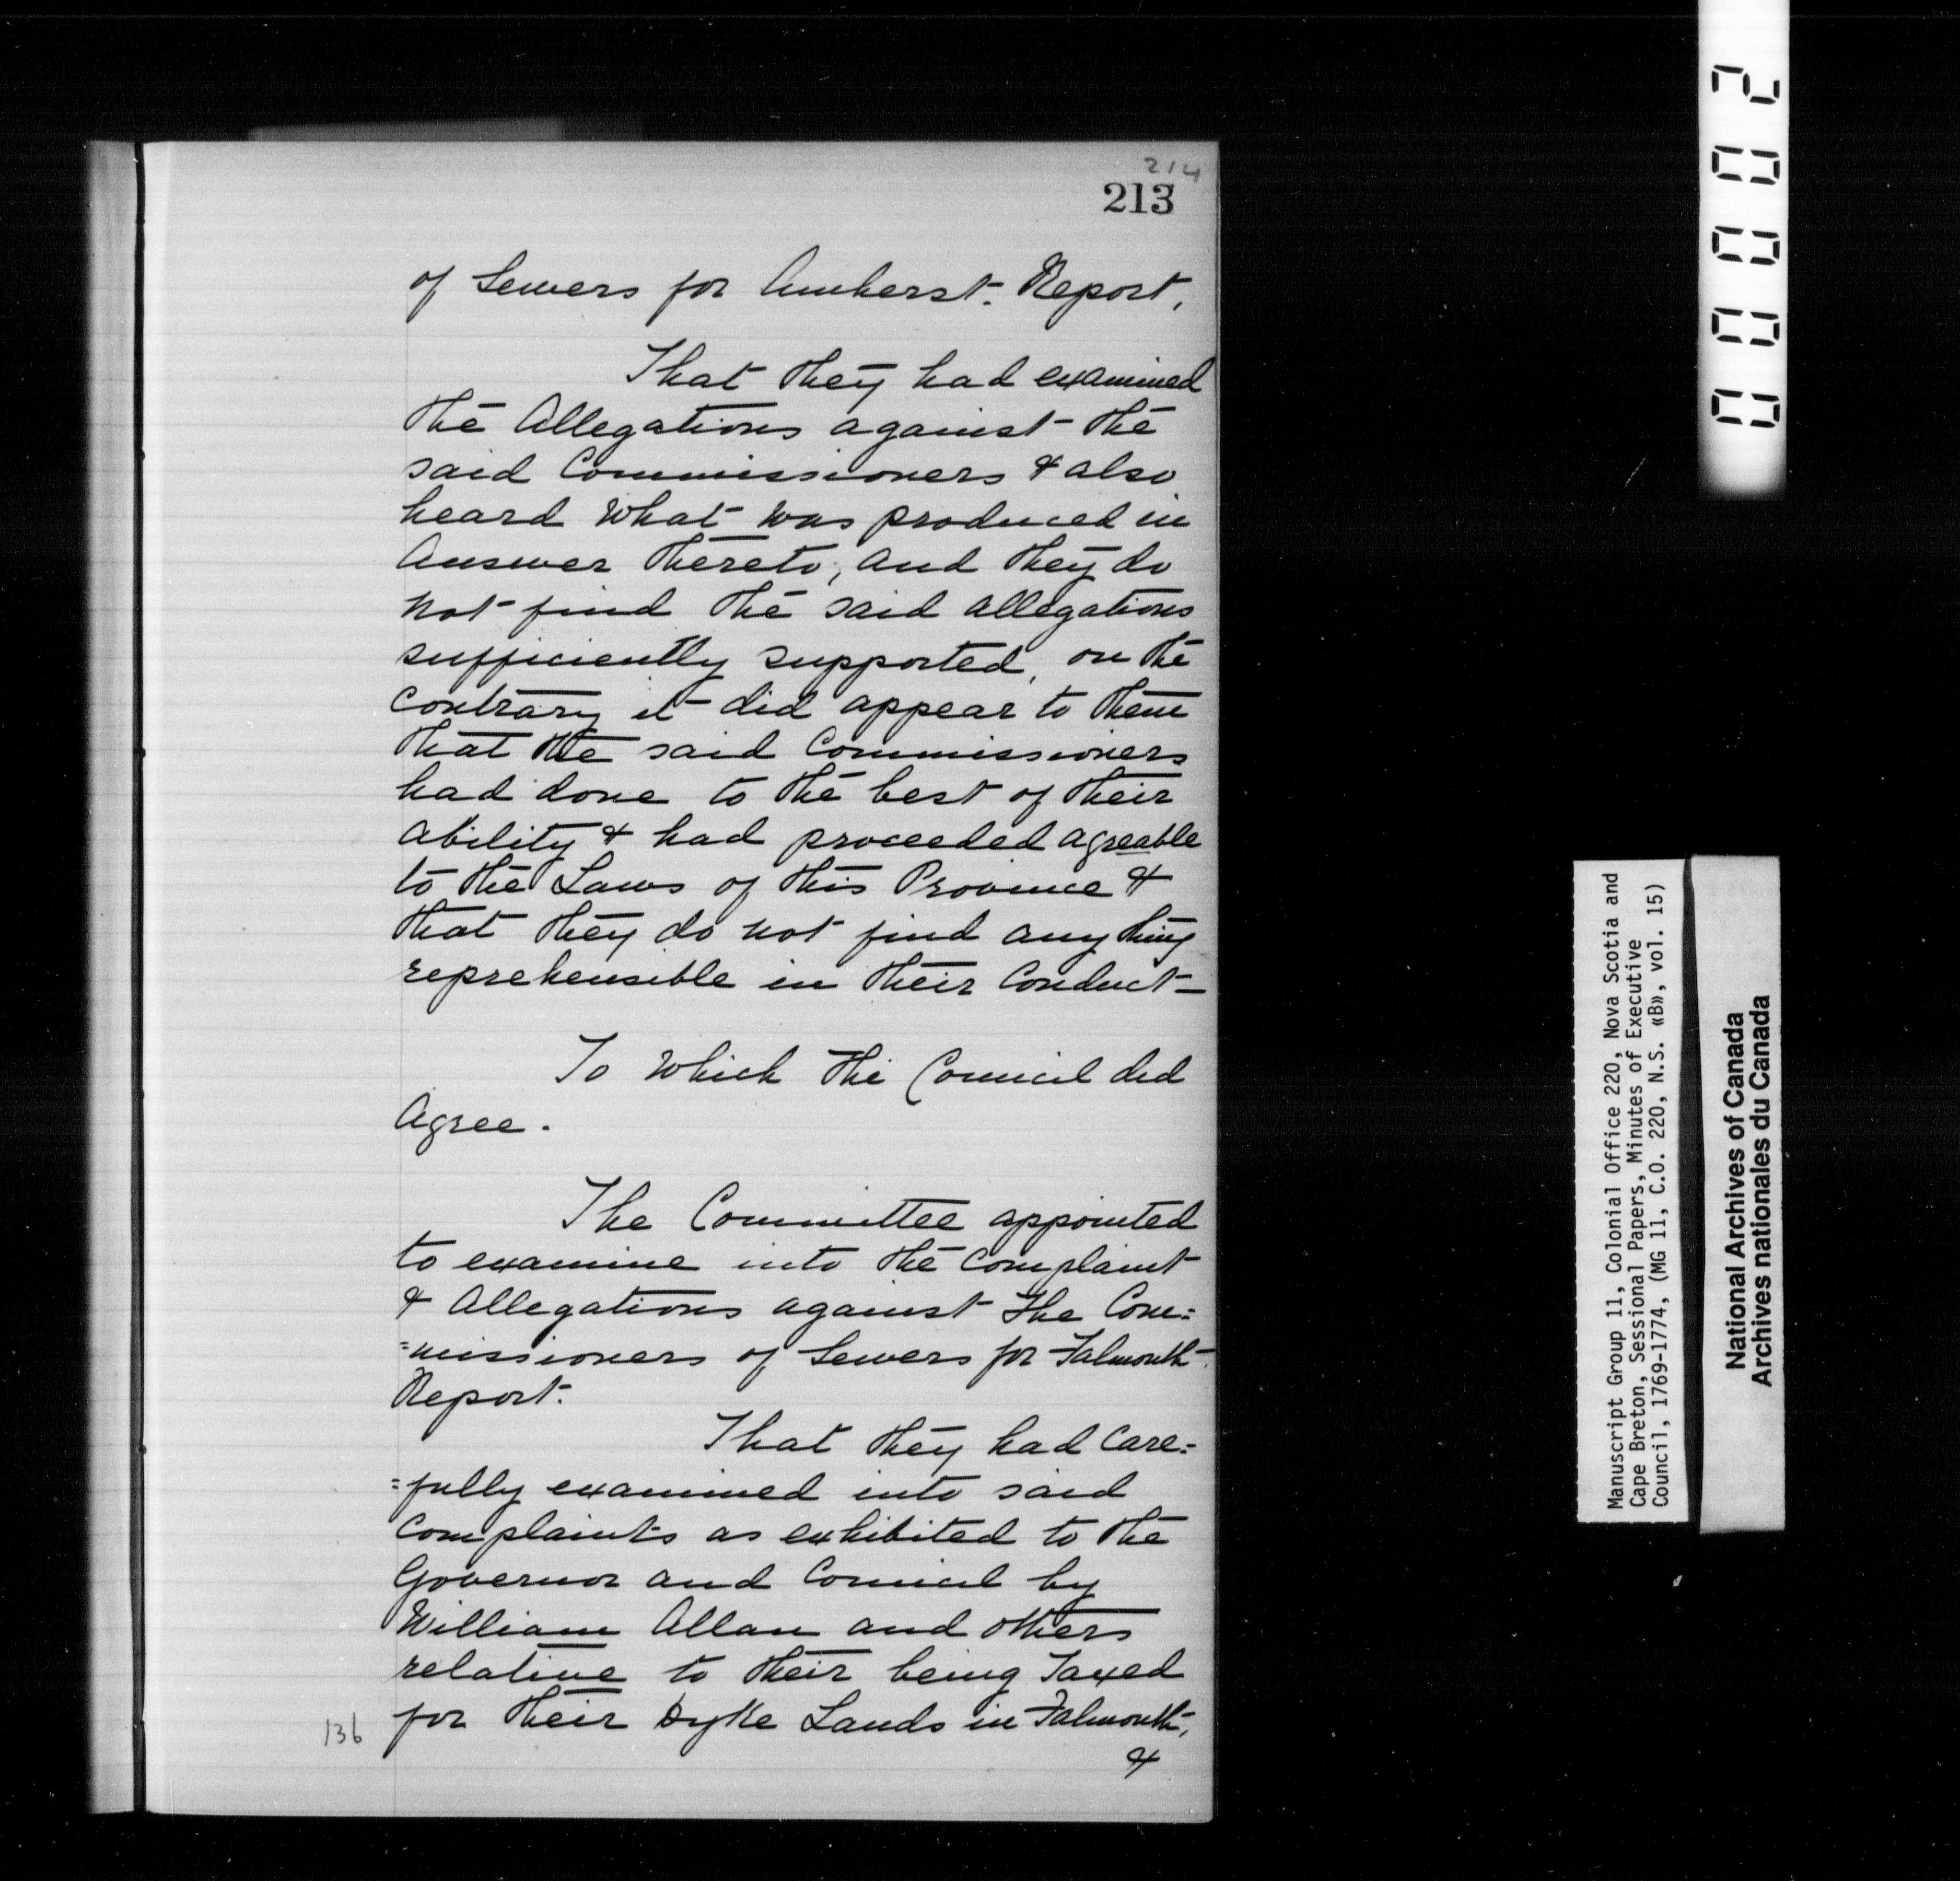 214
213
of Sewers for Amherst. Report,
That they had examined
the Allegations against the
said Commissioners & also
heard what was produced in
Answer thereto, and they do
not find the said allegations
sufficiently supported, on the
contrary it did appear to them
that the said Commissioners
had done to the best of their
ability & had proceeded agreable
to the Laws of this Province &
that they do not find any thing
reprehensible in their Conduct-
To which the Council did
Agree.
The Committee appointed
to examine into the Complaint
& Allegations against the Com=
=missioners of Sewers for Falmouth.
Report.
That they had Care=
=fully examined into said
Complaints as exhibited to the
Governor and Council by
William Allan and others
relative to their being Taxed
for their Dyke Lands in Falmouth,
&
136
00002
Manuscript Group 11, Colonial Office 220, Nova Scotia and
Cape Breton, Sessional Papers, Minutes of Executive
Council, 1769-1774, (MG 11, C.O. 220, N.S. «B», vol. 15)
National Archives of Canada
Archives nationales du Canada